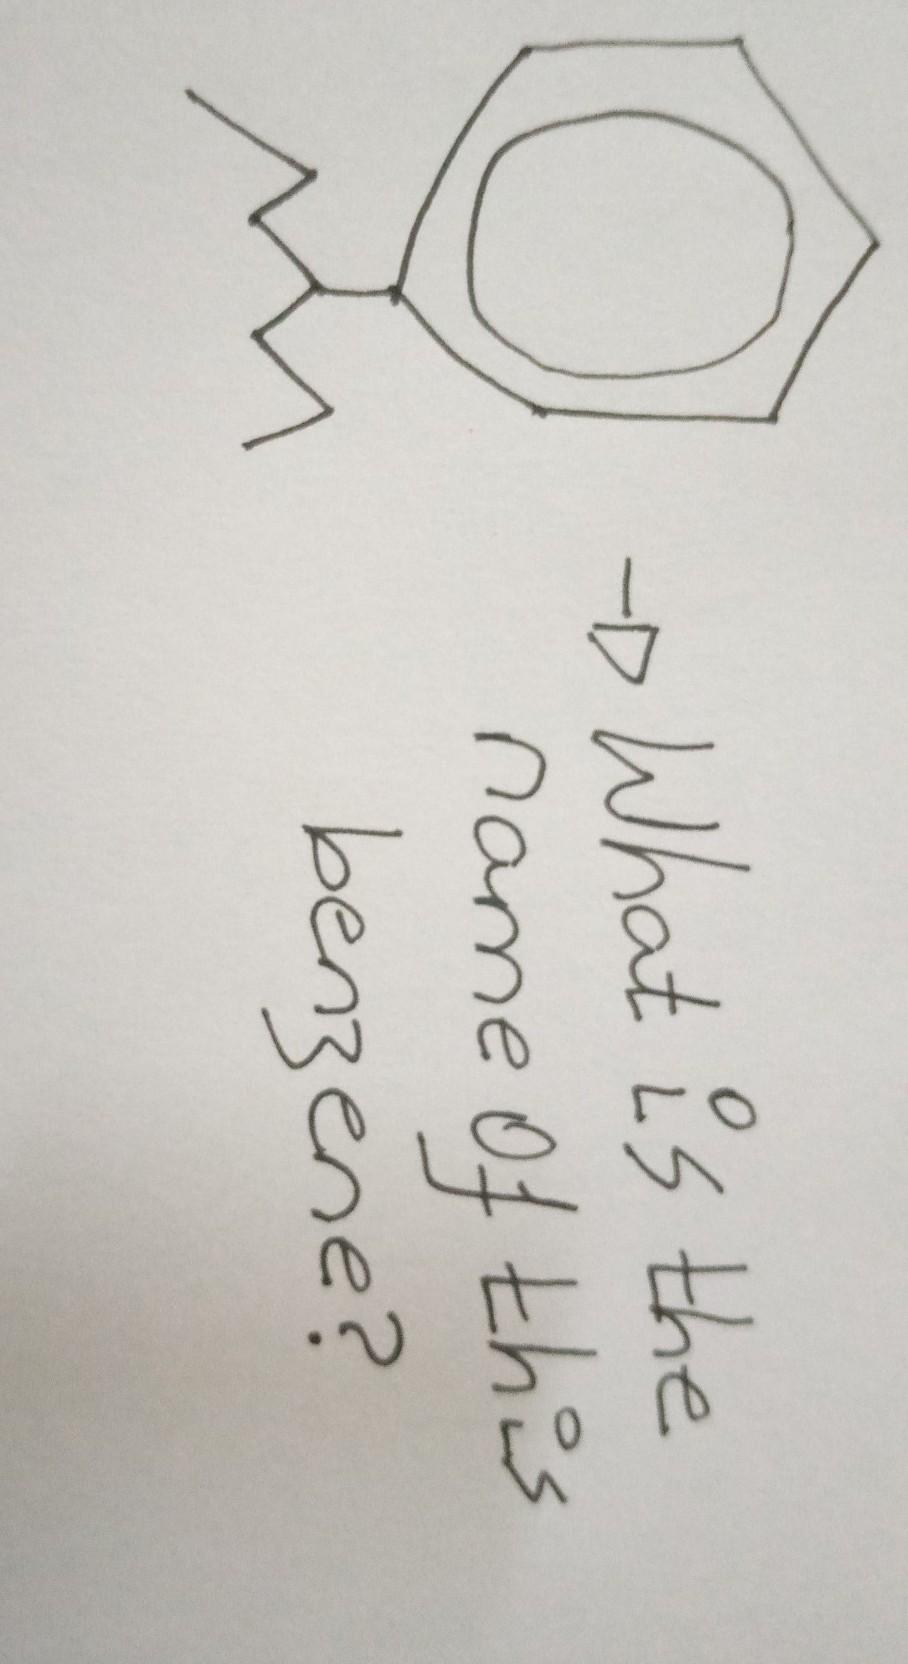 → What is the
name of this
benzene?